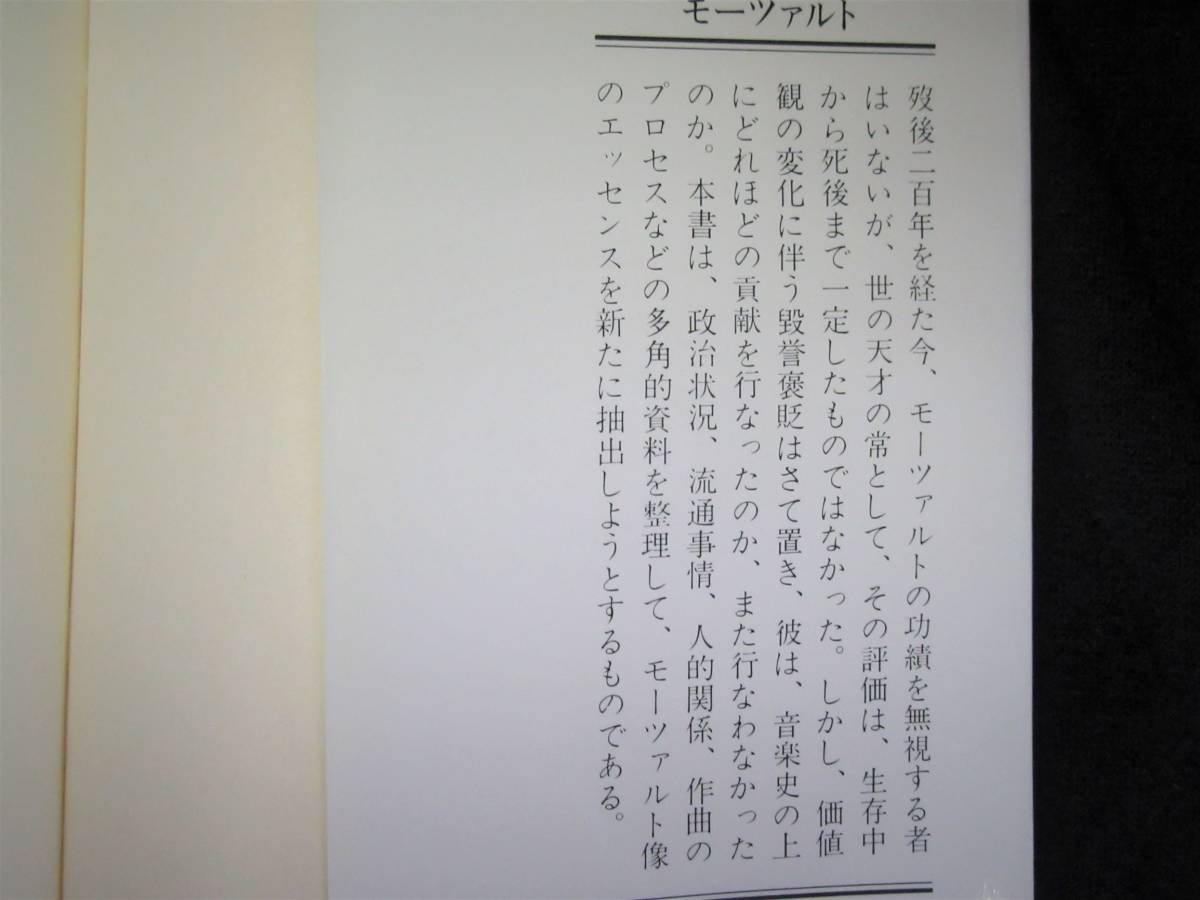 モーツァルト
歿後二百年を経た今、モーツァルトの功績を無視する者
はいないが、世の天才の常として、その評価は、生存中
から死後まで一定したものではなかった。しかし、価値
観の変化に伴う毀誉褒貶はさて置き、彼は、音楽史の上
にどれほどの貢献を行なったのか、また行なわなかった
のか。本書は、政治状況、流通事情、人的関係、作曲の
プロセスなどの多角的資料を整理して、モーツァルト像
のエッセンスを新たに抽出しようとするものである。